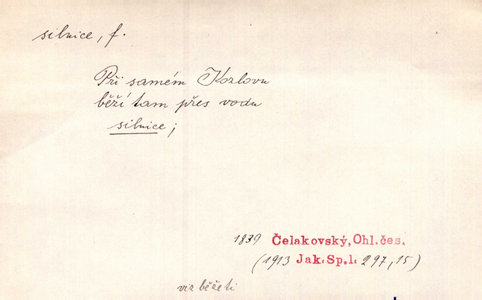 silnice, f.
Při samém Kozlovu
běží tam přes vodu
silnice;
1839 Čelakovský, Ohl. čes.
(1913 Jak. Sp. I. 297, 15)
viz běžeti